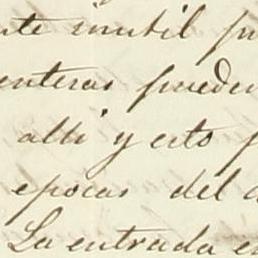 inutil
enteras pueden
alli y esto
epocas del
La entrada